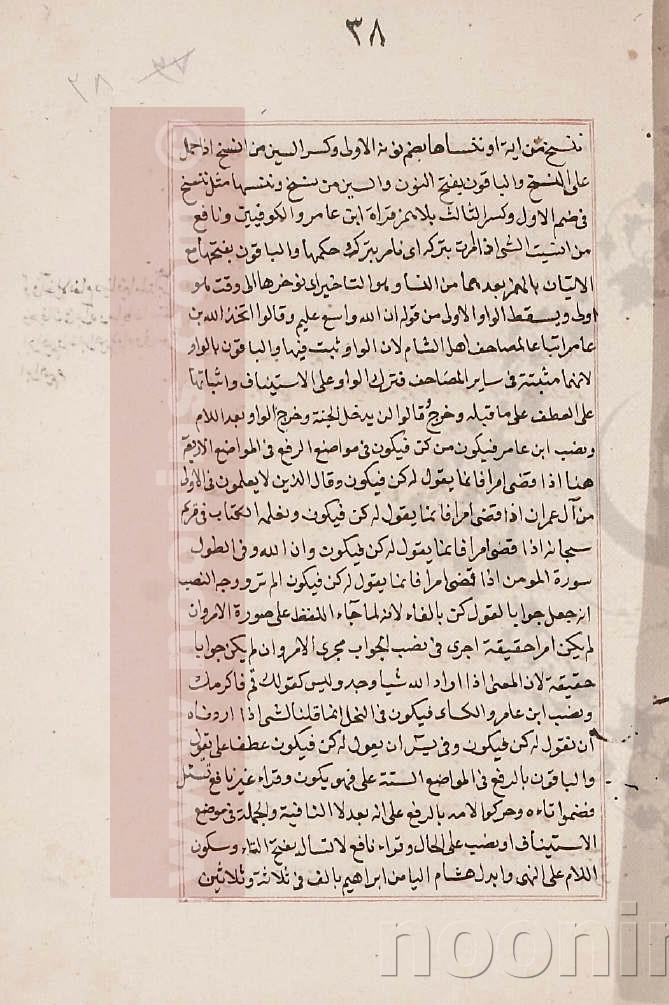 ٣٨
٨٢
ننسخ من اية او ننساها بضم نونه الاولى وكسر السين من انسخ اذا حمل
على النسخ والباقون بفتح النون والسين من نسخ وننسها مثل ننسخ
فى ضم الاول وكسر الثالث بلا همز قراة ابن عامر والكوفيين ونافع
من انسيت الشى اذا امرت بتركه اى نامر بترك حكمها والباقون بفتحها مع
الاتيان بالهمز بعدهما من النسا وهو التاخير اى نوخرها الى وقت هو
اولى ويسقط الواو الاولى من قوله ان الله واسع عليم وقالوا اتخذ الله بن
عامر اتباعا لمصاحف اهل الشام لان الواو ثبت فيها والباقون بالواو
لانها مثبتة فى ساير المصاحف فترك الواو على الاستيناف واثباتها
على العطف على ما قبله وخرج وقالوا لن يدخل الجنة وخرج الواو بعد اللام
ونصب ابن عامر فيكون من كن فيكون فى مواضع الرفع فى المواضع الاربعة
هنا اذا قضى امرا فانما يقول له كن فيكون وقال الذين لا يعلمون فى الاولى
من آل عمران اذا قضى امرا فانما يقول له كن فيكون ونعلمه الكتاب فى مريم
سبحانه اذا قضى امرا فانما يقول له كن فيكون وان الله وفى الطول
سورة المومن اذا قضى امرا فانما يقول له كن فيكون الم تر ووجه النصب
انه جعل جوابا لقول كن بالفاء لانه لما جآء اللفظ على صورة الامر وان
لم يكن امرا حقيقة اجرى فى نصب الجواب مجرى الامر وان لم يكن جوابا
حقيقة لان المعنى اذا اراد الله شيا وجد وليس كقولك قم فاكرمك
ونصب ابن عامر والكساء فيكون فى النحل انما قلنا لشى اذا اردناه
ان نقول له كن فيكون وفى يس ان يقول له كن فيكون عطف على يقول
والباقون بالرفع فى المواضع الستة على فهو يكون وقراء غير نافع تسئل
فضموا تاءه وحركوا لامه بالرفع على انه بعد لا النافية والجملة فى موضع
الاستيناف او نصب على الحال وقراء نافع لا تسال بفتح التاء وسكون
اللام على النهى وابدل هشام اليا من ابراهيم بالف فى ثلاثة وثلاثين
noonin